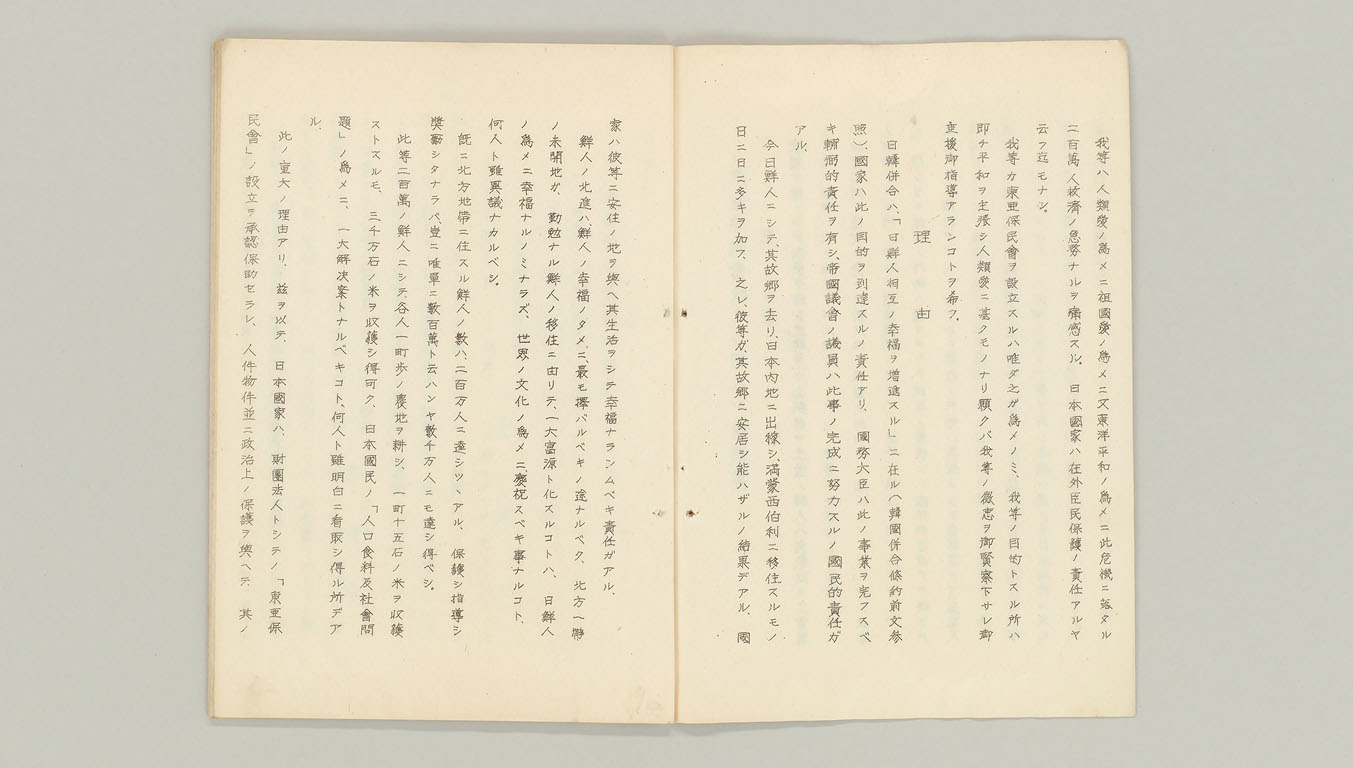 我等ハ人類愛ノ爲メニ祖國愛ノ爲メニ又東洋平和ノ爲メニ此危機ニ落タル
二百萬人救濟ノ急務ナルヲ痛感スル。日本國家ハ在外臣民保護ノ責任アルヤ
云フ迄モナシ。
我等カ東亜保民會ヲ設立スルハ唯ダ之ガ爲メノミ、我等ノ目的トスル所ハ
即チ平和ヲ主張シ人類愛ニ基クモノナリ願クバ我等ノ微志ヲ御賢察下サレ御
支援御指導アランコトヲ希フ。
理由
日韓併合ハ、「日鮮人相互ノ幸福ヲ増進スル」ニ在ル（韓國併合條約前文参
照）、國家ハ此ノ目的ヲ到達スルノ責任アリ、國務大臣ハ此ノ事業ヲ完フスベ
キ輔弼的責任ヲ有シ、帝國議會ノ議員ハ此事ノ完成ニ努力スルノ國民的責任ガ
アル、
今日鮮人ニシテ、其故郷ヲ去リ、日本内地ニ出稼シ、満蒙西伯利ニ移住スルモノ
日ニ日ニ多キヲ加フ、之レ、彼等ガ、其故郷ニ安居シ能ハザルノ結果デアル、國
家ハ彼等ニ安住ノ地ヲ與ヘ其生活ヲシテ幸福ナランムベキ責任ガアル、
鮮人ノ北進ハ、鮮人ノ幸福ノタメニ、最モ擇バルベキノ途ナルベク、北方一帶
ノ未開地ガ、勤勉ナル鮮人ノ移住ニ由リテ、一大富源ト化スルコトハ、日鮮人
ノ爲メニ幸福ナルノミナラズ、世界ノ文化ノ爲メニ慶祝スベキ事ナルコト、
何人ト雖異議ナカルベシ。
既ニ北方地帶ニ住スル鮮人ノ數ハ、二百万人ニ達シツヽアル、保護シ指導シ
奬勵シタナラバ、豈ニ唯單ニ數百萬ト云ハンヤ數千万人ニモ達シ得ベシ。
此等二百萬ノ鮮人ニシテ、各人一町歩ノ農地ヲ耕シ、一町十五石ノ米ヲ収穫
ストスルモ、三千万石ノ米ヲ収穫シ得可ク、日本國民ノ「人口食料及社會問
題」ノ爲メニ、一大解决案トナルベキコト、何人ト雖明白ニ看取シ得ル所デア
ル、
此ノ重大ノ理由アリ、茲ヲ以テ、日本國家ハ、財團法人トシテノ「東亜保
民會」ノ設立ヲ承認保助セラレ、人件物件並ニ政治上ノ保護ヲ與ヘテ、其ノ